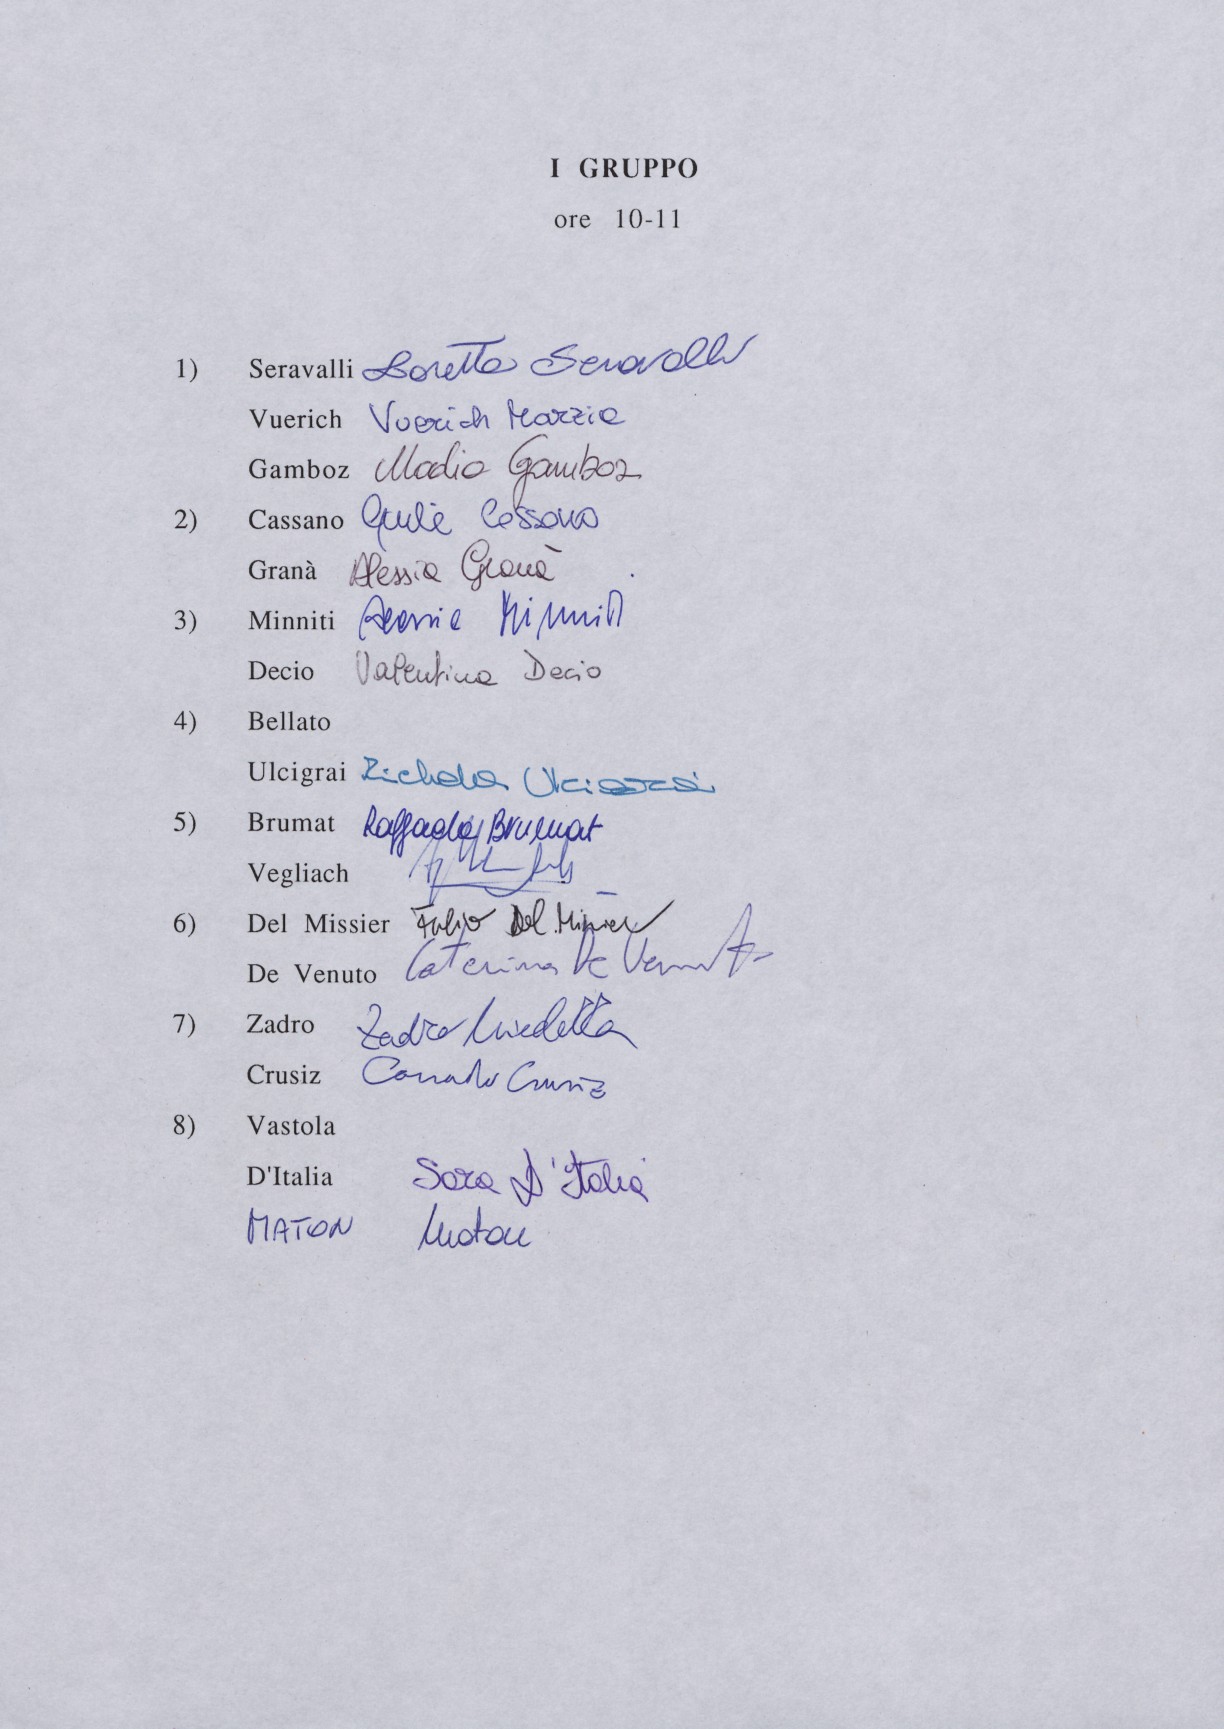 I GRUPPO
ore 10-11
1) Seravalli Loretta Seravalli
Vuerich Vuerich Marzia
Gamboz Nadia Gamboz
2) Cassano Giulia Cassano
Granà Alessia Granà
3) Minniti Minniti
Decio Valentina Decio
4) Bellato
Ulcigrai Michela Ulcigrai
5) Brumat Raffaella Brumat
Vegliach
6) Del Missier Fabio Del Missier
De Venuto Caterina De Venuto
7) Zadro Zadro Nicoletta
Crusiz Corrado Crusiz
8) Vastola
D'Italia Sara D'Italia
MATON Maton